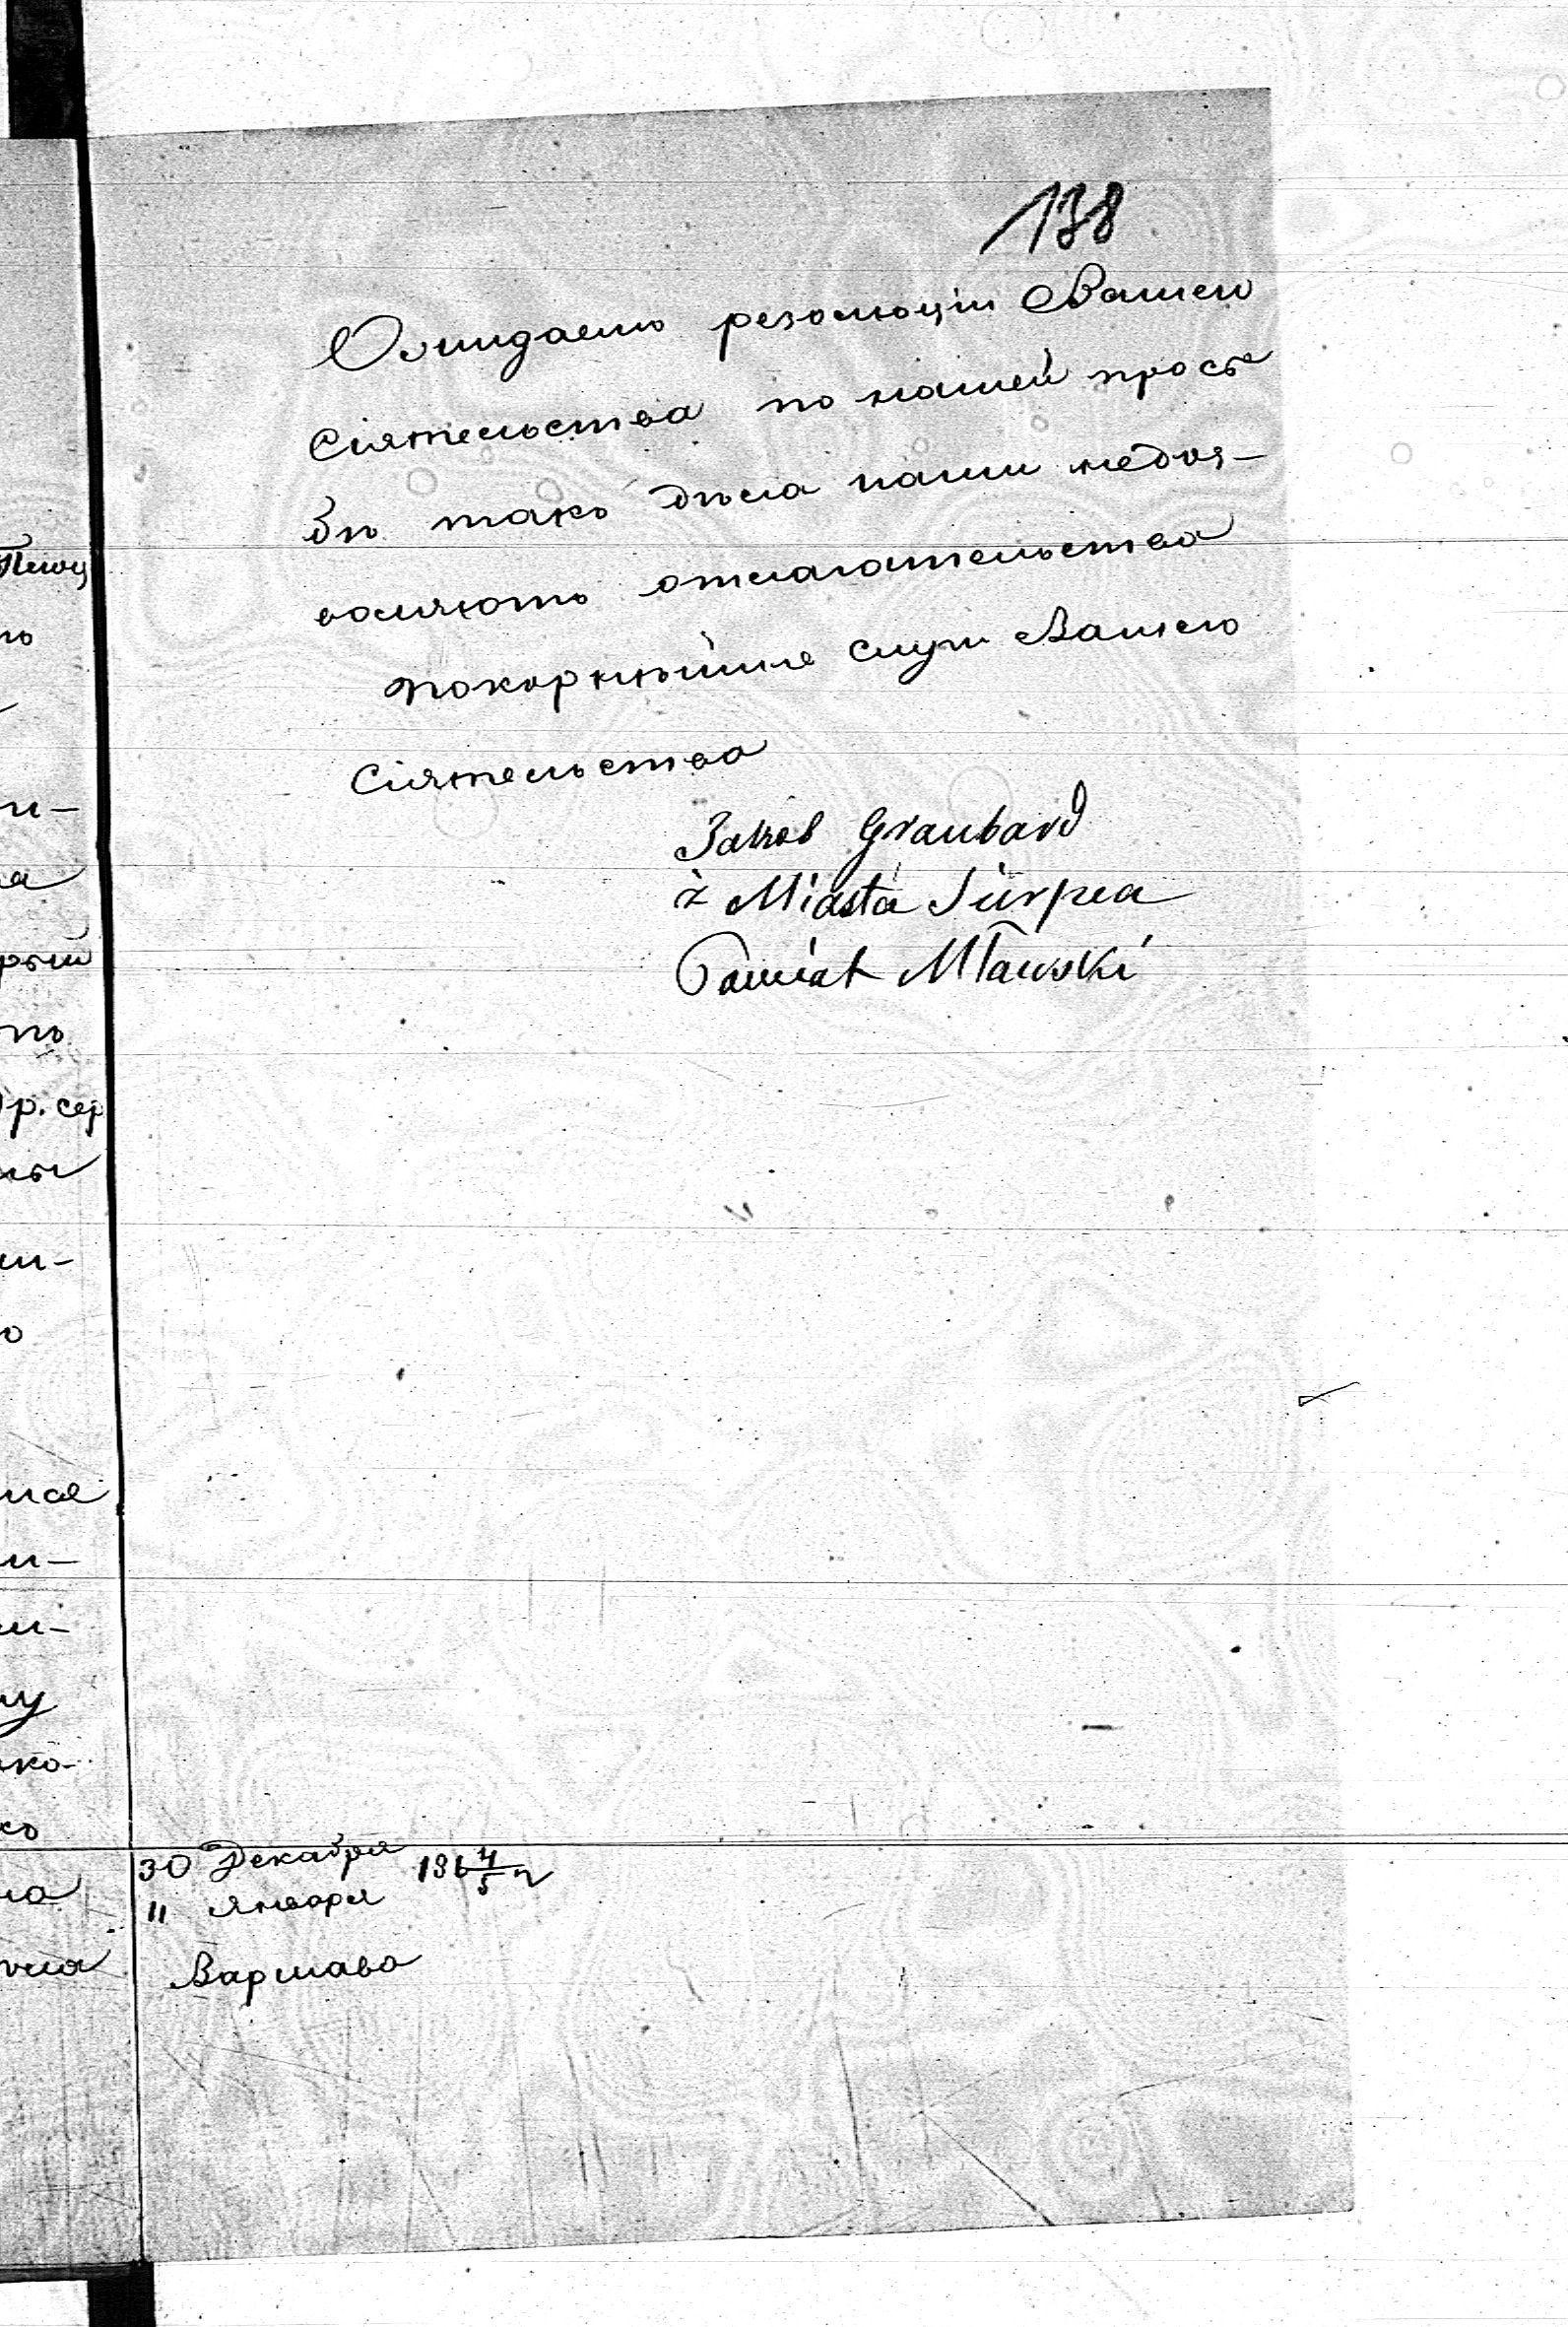 138
Ожидаемъ резолюціи Вашего
Сіятельства по нашей прось
бѣ такъ дѣла наши недоз-
воляютъ отлагательства
покорнѣйшіе слуги Вашего
Сіятельства
Jakób Graubard
z Miasta Sierpca
Powiat Mławski
30 Декабря 1864/5 г
11 Января
Варшава